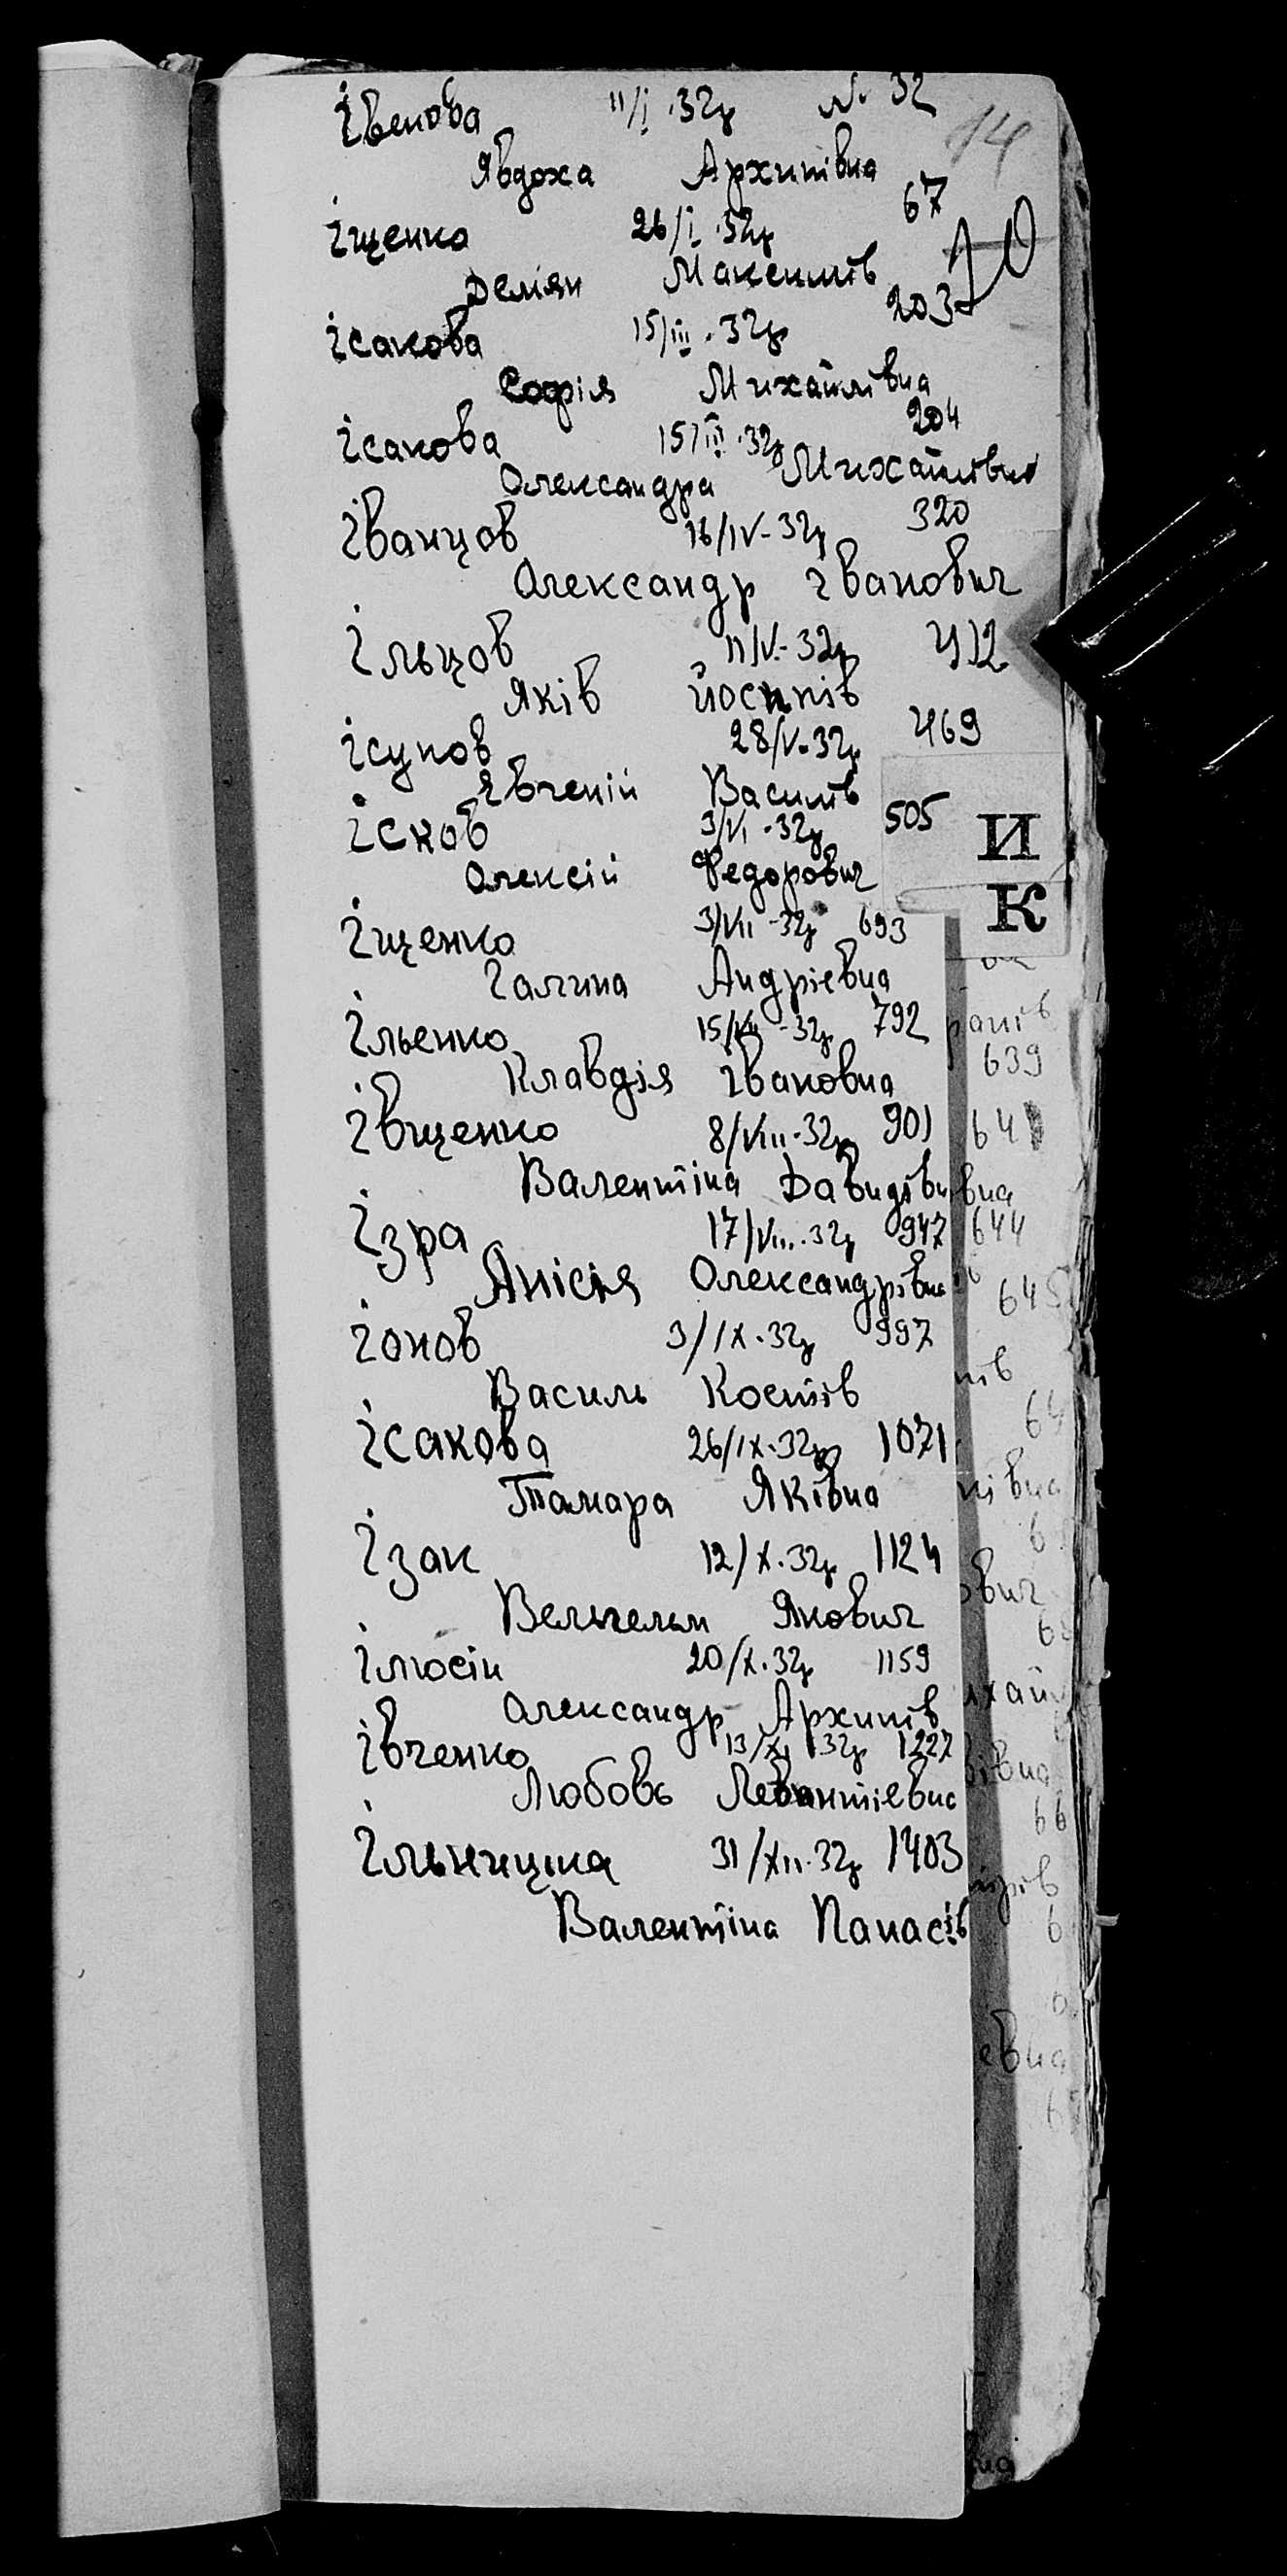 Івекова 11/I.32р № 32
14
Явдоха Архипівна
Іщенко 26/I.32р 67
10
Демян Максимів
Ісакова 15/III.32р 203
Софія Михайлівна
Ісакова 15/III.32р 204
Олександра Михайлівна
Іванцов 16/IV-32р 320
Олександр Іванович
Ільцов 11/V-32р 412
Яків Йосипів
Ісупов 28/V.32р 469
Явгеній Василів
Ісков 3/VI.32р 505
И
Олексій Федорович
К
Іщенко 3/VII-32р 693
Галина Андрієвна
Ільенко 15/VII-32р 792
Клавдія Івановна
639
Івщенко 8/VIII.32р 901
Валентіна Давидівн
Ізра 17/VIII.32р 947 644
Анісія Олександрівна
Іонов 3/IX.32р 997
Василь Костів
Ісакова 26/IX.32р 1071
Тамара Яківна
Ізак 12/X.32р 1124
Вельгельм Якович
Ілюсін 20/X.32р 1159
Олександр Архипів
Івченко 13/XI 32р 1227
Любовь Левантіевна
Ільницька 31/XII.32р 1403
Валентіна Панасів